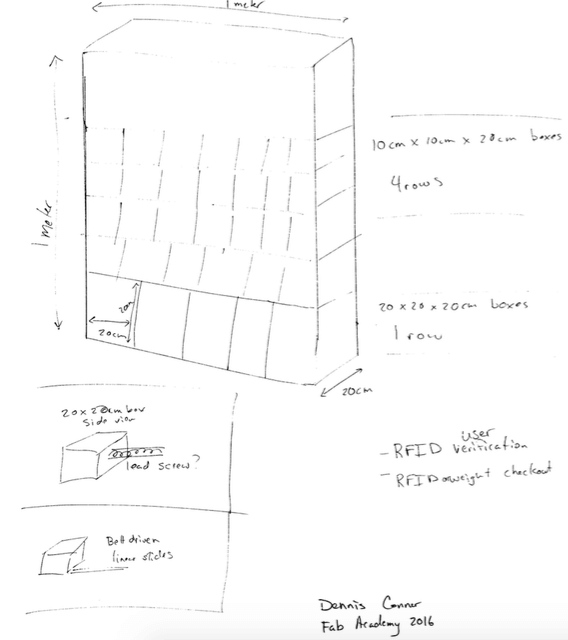 1 meter
1 meter
10cm x 10cm x 20cm boxes
4 rows
20cm
20cm
20 x 20 x 20cm boxes
1 row
20cm
20 x 20cm box
side view
lead screw?
Belt driven
linear slides
- RFID user verification
- RFID or weight checkout
Dennis Conner
Fab Academy 2016